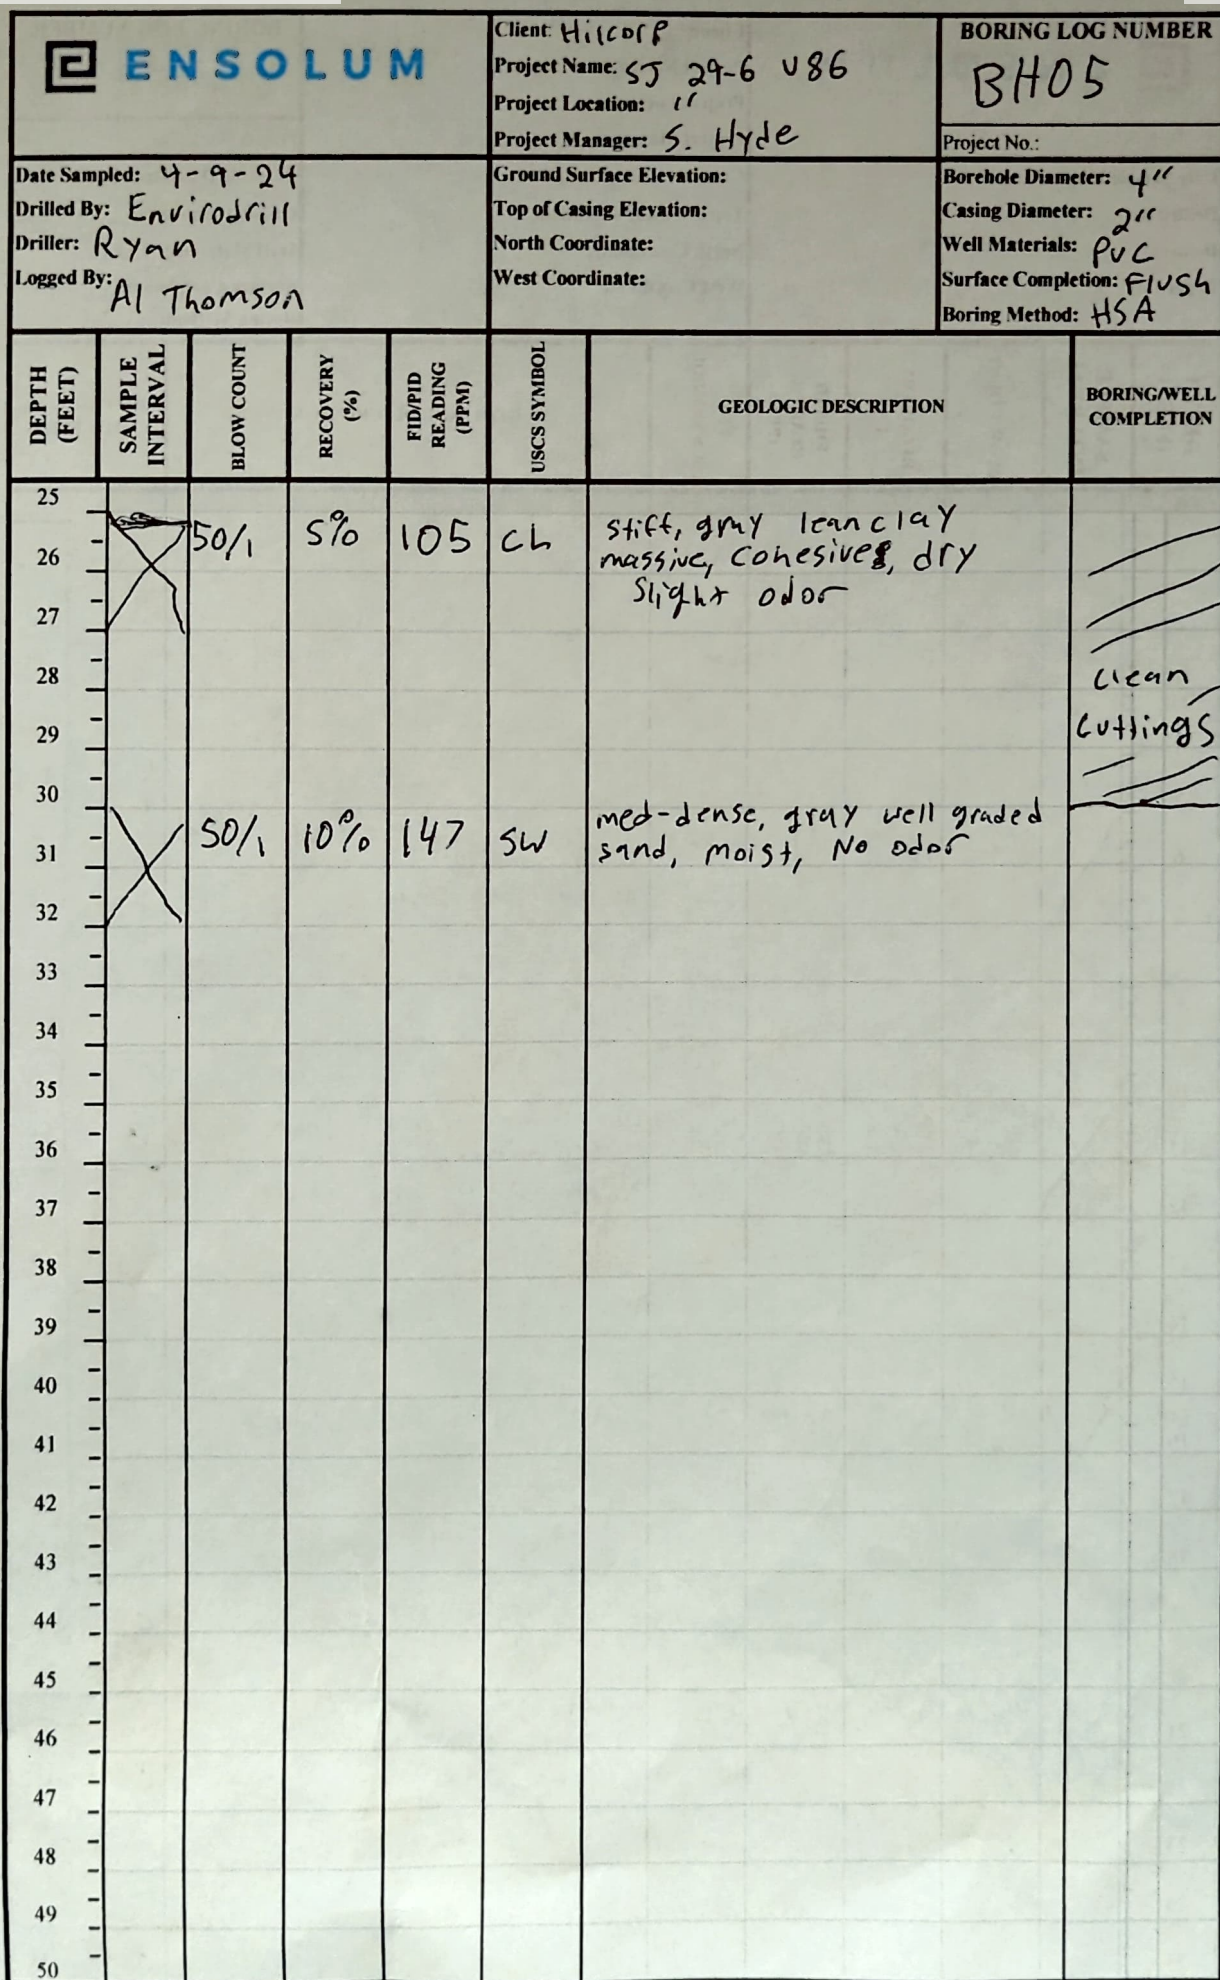 ENSOLUM
Client: Hilcorp
Project Name: SJ 29-6 U86
Project Location: "
Project Manager: S. Hyde
BORING LOG NUMBER
BH05
Project No.:
Date Sampled: 4-9-24
Drilled By: Envirodrill
Driller: Ryan
Logged By: Al Thomson
Ground Surface Elevation:
Top of Casing Elevation:
North Coordinate:
West Coordinate:
Borehole Diameter: 4"
Casing Diameter: 2"
Well Materials: PVC
Surface Completion: Flush
Boring Method: HSA
DEPTH
(FEET)
SAMPLE
INTERVAL
BLOW COUNT
RECOVERY
(%)
FID/PID
READING
(PPM)
USCS SYMBOL
GEOLOGIC DESCRIPTION
BORING/WELL
COMPLETION
25
50/1 5% 105 CL stiff, gray lean clay
26
massive, cohesive, dry
slight odor
27
28
clean
29
cuttings
30
50/1 10% 147 SW med-dense, gray well graded
31
sand, moist, No odor
32
33
34
35
36
37
38
39
40
41
42
43
44
45
46
47
48
49
50